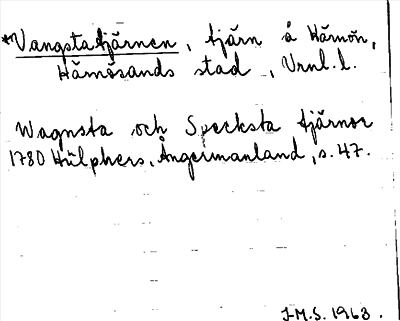 *Vangstatjärnen, tjärn å Härnön,
Härnösands stad, Vrnl. l.
Wagnsta och Specksta tjärnor
1780 Hülphers, Ångermanland, s. 47.
J-M.S. 1963.